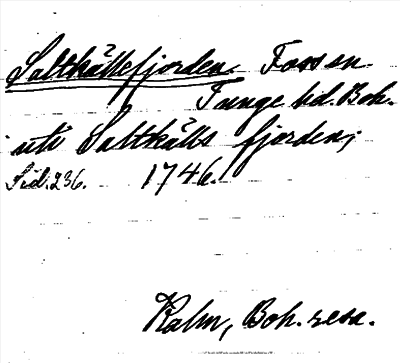 Saltkällefjorden. Foss sn.
Tunge hd. Boh.
uti Saltkälls fjorden;
Sid. 236. 1746.
Kalm, Boh. resa.